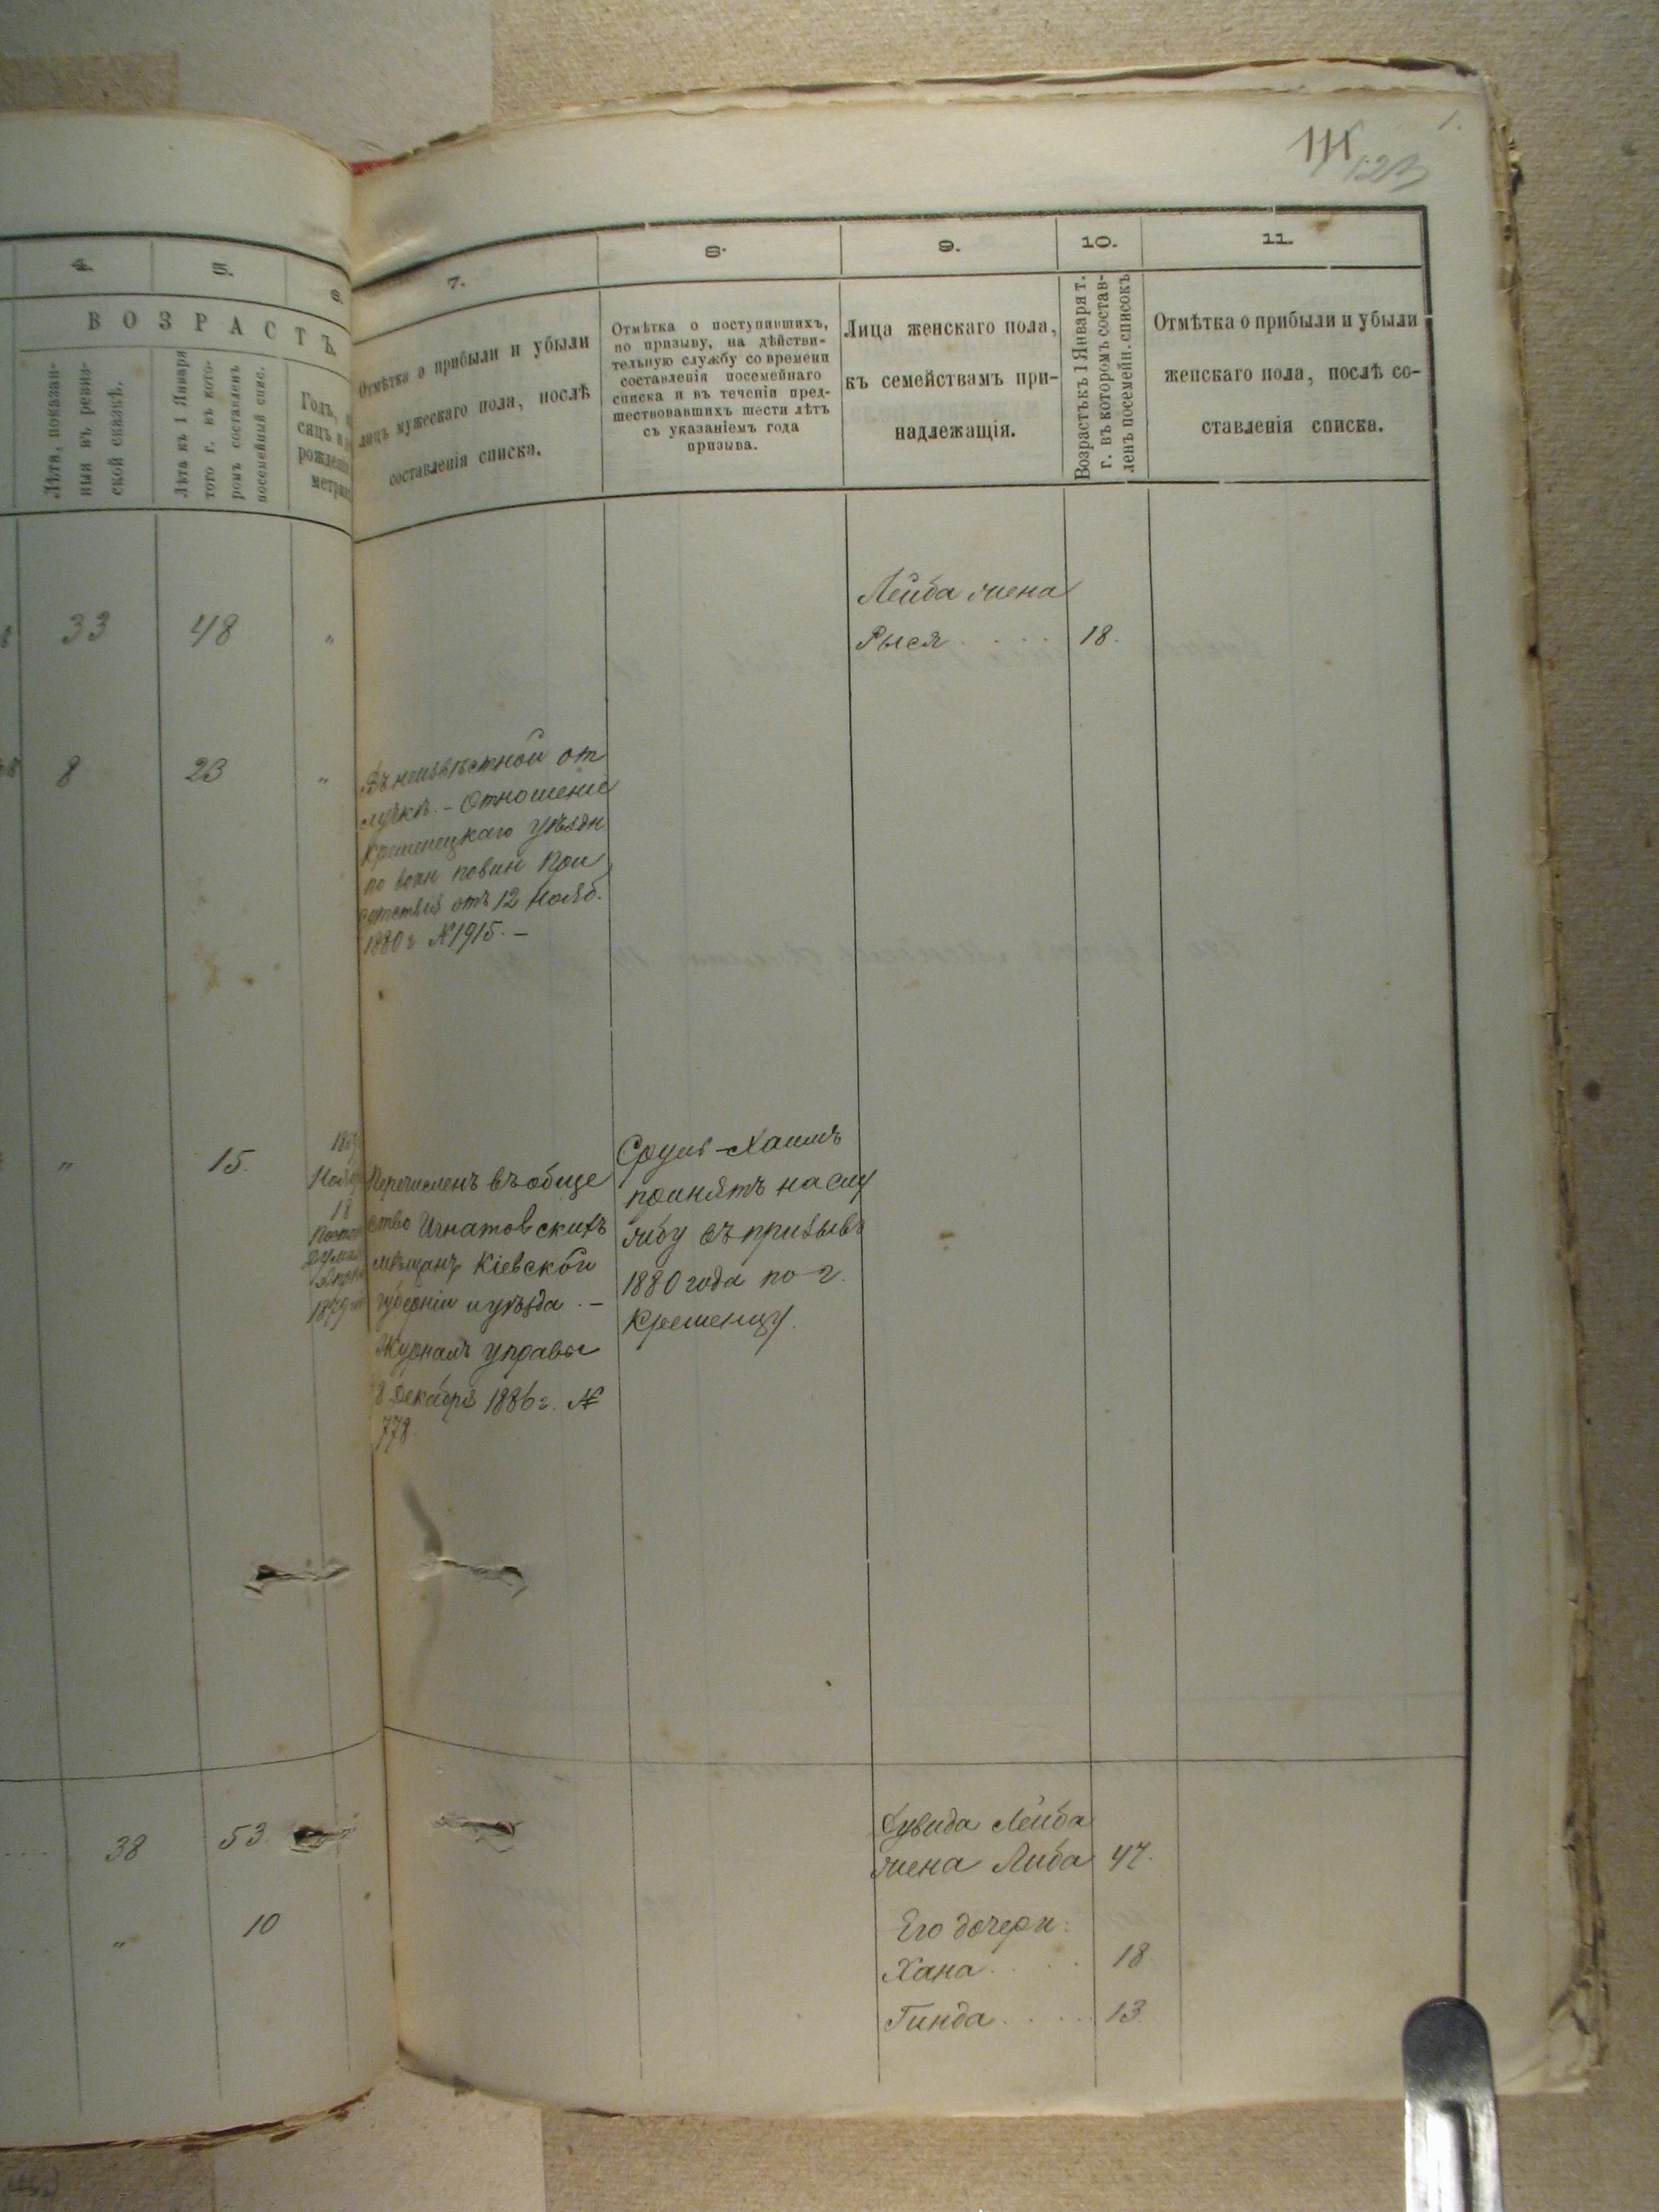 1.
123
4.
5.
6.
7.
8.
9.
10.
11.
ВОЗРАСТЪ.
Лѣта, показан-
ныя въ ревиз-
ской сказкѣ.
Лѣта къ 1 Января
того г. въ кото-
ромъ составленъ
посемейный спис.
Годъ,
сяцъ и
рожденія
метрик
Отмѣтка о прибыли и убыли
лицъ мужескаго пола, послѣ
составленія списка.
Отмѣтка о поступившихъ,
по призыву, на дѣйстви-
тельную службу со времени
составленія посемейнаго
списка и въ теченіи пред-
шествовавшихъ шести лѣтъ
съ указаніемъ года
призыва.
Лица женскаго пола,
къ семействамъ при-
надлежащія.
Возрастъ къ 1 Января т.
г. въ которомъ состав-
ленъ посемейн. списокъ
Отмѣтка о прибыли и убыли
женскаго пола, послѣ со-
ставленія списка.
33
48
"
Лейба жена
Рыся . . . .
18.
8
23
"
Въ неизвѣстной от
лучкѣ. – Отношеніе
Кременецкаго уѣздн
по воин повин При
сутствія отъ 12 Нояб.
1880 г № 1915. –
"
15.
18
Перечисленъ въ обще
ство Игнатовскихъ
мѣщанъ Кіевской
губерніи и уѣзда. –
Журналъ управы
8 Декабря 1886 г. №
778.
Сруль-Хаимъ
принятъ на слу
жбу въ призывъ
1880 года по г.
Кременцу.
38
53
Лейба
жена Либа
47.
"
10
Его дочери:
Хана . . . .
18
Гинда . . . .
13.